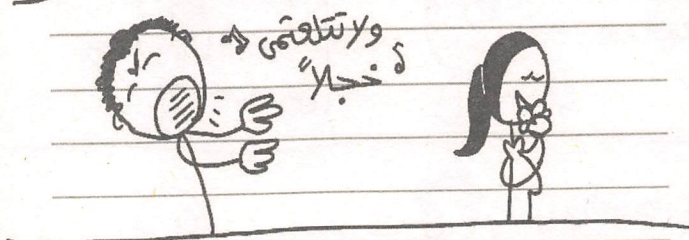 ولا تتلعثمي
خجلاً